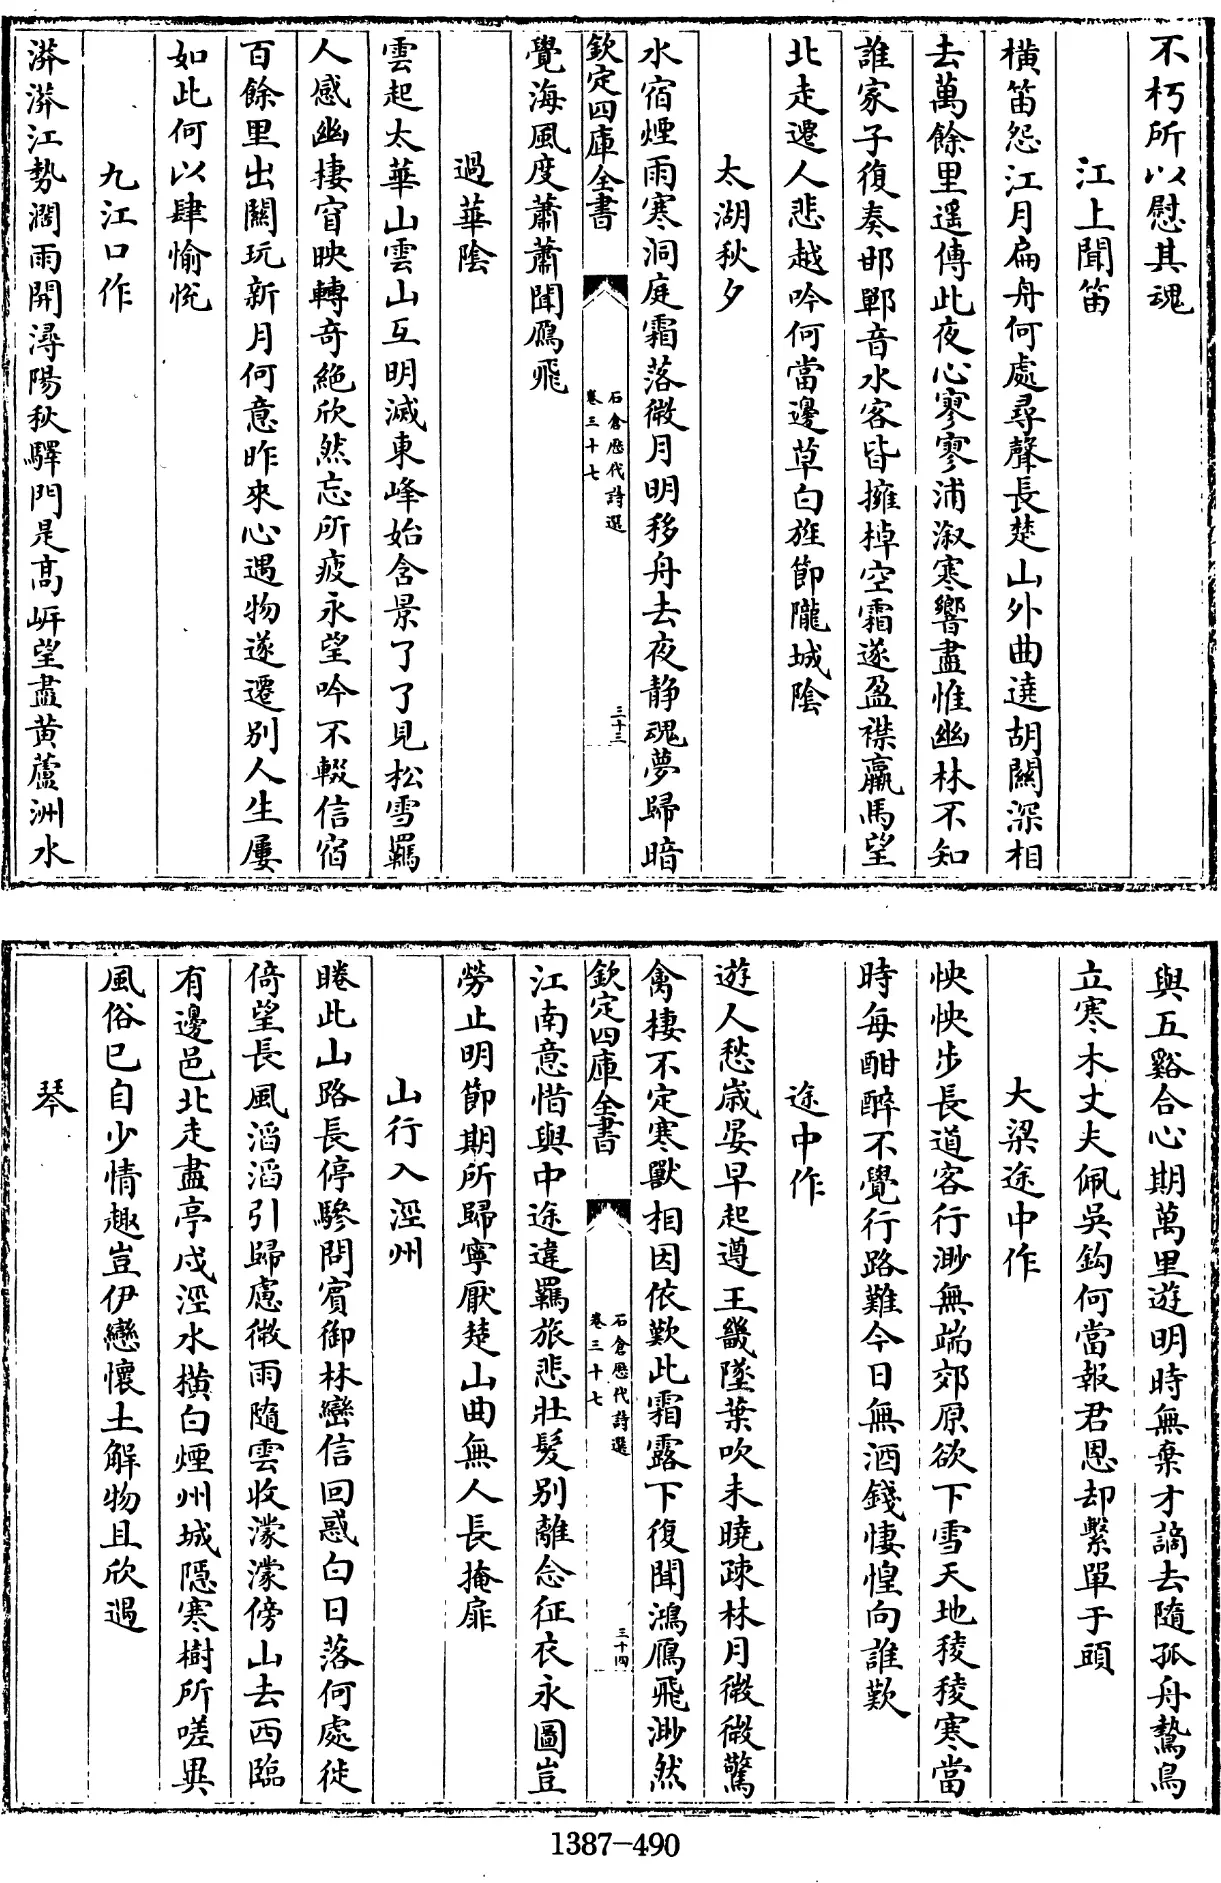 不朽所以慰其魂
江上聞笛
橫笛怨江月扁舟何處尋聲長楚山外曲遶胡關深相
去萬餘里遥傳此夜心寥寥浦溆寒響盡惟幽林不知
誰家子復奏邯鄲音水客皆擁棹空霜遂盈襟羸馬望
北走遷人悲越吟何當邊草白旌節隴城陰
太湖秋夕
水宿煙雨寒洞庭霜落微月明移舟去夜静魂夢歸暗
欽定四庫全書
石倉歷代詩選
卷三十七
三十三
覺海風度蕭蕭聞鴈飛
過華陰
雲起太華山雲山互明滅東峰始含景了了見松雪羈
人感幽棲窅映轉奇絶欣然忘所疲永望吟不輟信宿
百餘里出關玩新月何意昨來心遇物遂遷别人生屢
如此何以肆愉悅
九江口作
漭漭江勢濶雨開潯陽秋驛門是高岍望盡黄蘆洲水
與五谿合心期萬里遊明時無棄才謫去隨孤舟鷙鳥
立寒木丈夫佩吳鈎何當報君恩却繫單于頭
大梁途中作
怏怏步長道客行渺無端郊原欲下雪天地稜稜寒當
時每酣醉不覺行路難今日無酒錢悽惶向誰歎
途中作
遊人愁歳晏早起遵王畿墜葉吹未曉疎林月微微驚
禽棲不定寒獸相因依歎此霜露下復聞鴻鴈飛渺然
欽定四庫全書
石倉歷代詩選
卷三十七
三十四
江南意惜與中途違羈旅悲壯髮别離念征衣永圖豈
勞止明節期所歸寧厭楚山曲無人長掩扉
山行入涇州
睠此山路長停驂問賓御林巒信回惑白日落何處徙
倚望長風滔滔引歸慮微雨隨雲收濛濛傍山去西臨
有邊邑北走盡亭戍涇水橫白煙州城隱寒樹所嗟異
風俗已自少情趣豈伊戀懷土觧物且欣遇
琴
1387-490